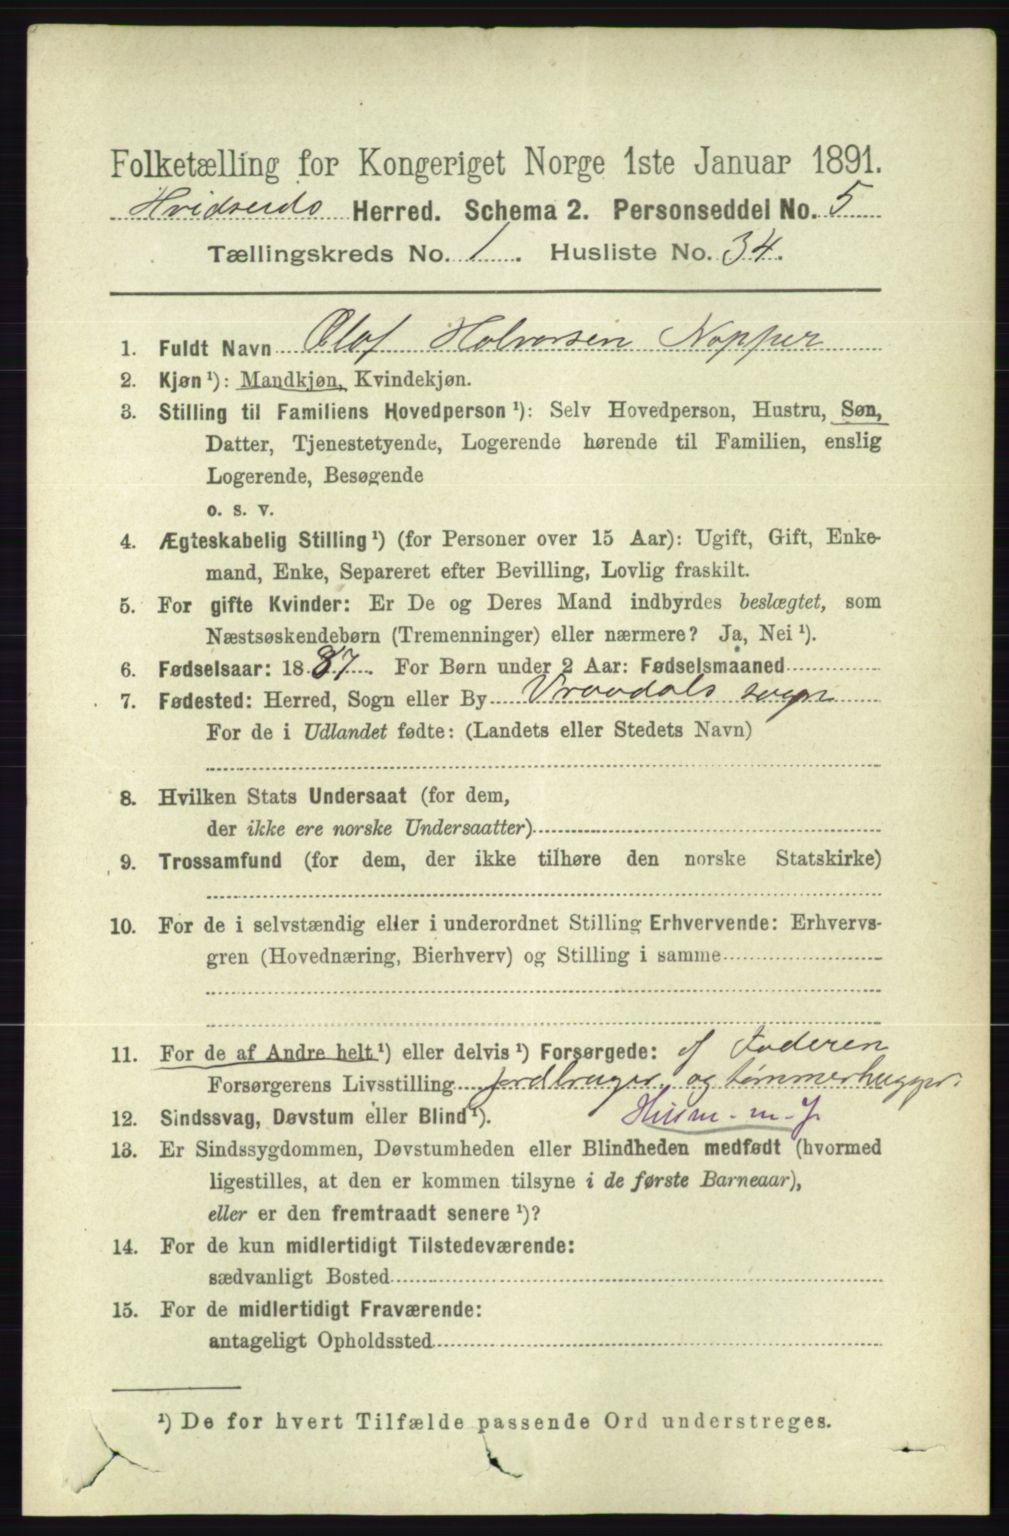 Folketælling for Kongeriget Norge 1ste Januar 1891.
Hvidseids Herred. Schema 2. Personseddel No. 5
Tællingskreds No. 1. Husliste No. 34.
1. Fuldt Navn Olaf Halvorsen Nopper
2. Kjøn ¹): Mandkjøn, Kvindekjøn.
3. Stilling til Familiens Hovedperson ¹): Selv Hovedperson, Hustru, Søn,
Datter, Tjenestetyende, Logerende hørende til Familien, enslig
Logerende, Besøgende
o. s. v.
4. Ægteskabelig Stilling ¹) (for Personer over 15 Aar): Ugift, Gift, Enke-
mand, Enke, Separeret efter Bevilling, Lovlig fraskilt.
5. For gifte Kvinder: Er De og Deres Mand indbyrdes beslægtet, som
Næstsøskendebørn (Tremenninger) eller nærmere? Ja, Nei ¹).
6. Fødselsaar: 1887. For Børn under 2 Aar: Fødselsmaaned
7. Fødested: Herred, Sogn eller By Vraadals sogn
For de i Udlandet fødte: (Landets eller Stedets Navn)
8. Hvilken Stats Undersaat (for dem,
der ikke ere norske Undersaatter)
9. Trossamfund (for dem, der ikke tilhøre den norske Statskirke)
10. For de i selvstændig eller i underordnet Stilling Erhvervende: Erhvervs-
gren (Hovednæring, Bierhverv) og Stilling i samme
11. For de af Andre helt ¹) eller delvis ¹) Forsørgede: af Faderen
Forsørgerens Livsstilling jordbruger og tømmerhugger.
12. Sindssvag, Døvstum eller Blind ¹). Husm. m. J
13. Er Sindssygdommen, Døvstumheden eller Blindheden medfødt (hvormed
ligestilles, at den er kommen tilsyne i de første Barneaar),
eller er den fremtraadt senere ¹)?
14. For de kun midlertidigt Tilstedeværende:
sædvanligt Bosted
15. For de midlertidigt Fraværende:
antageligt Opholdssted
¹) De for hvert Tilfælde passende Ord understreges.